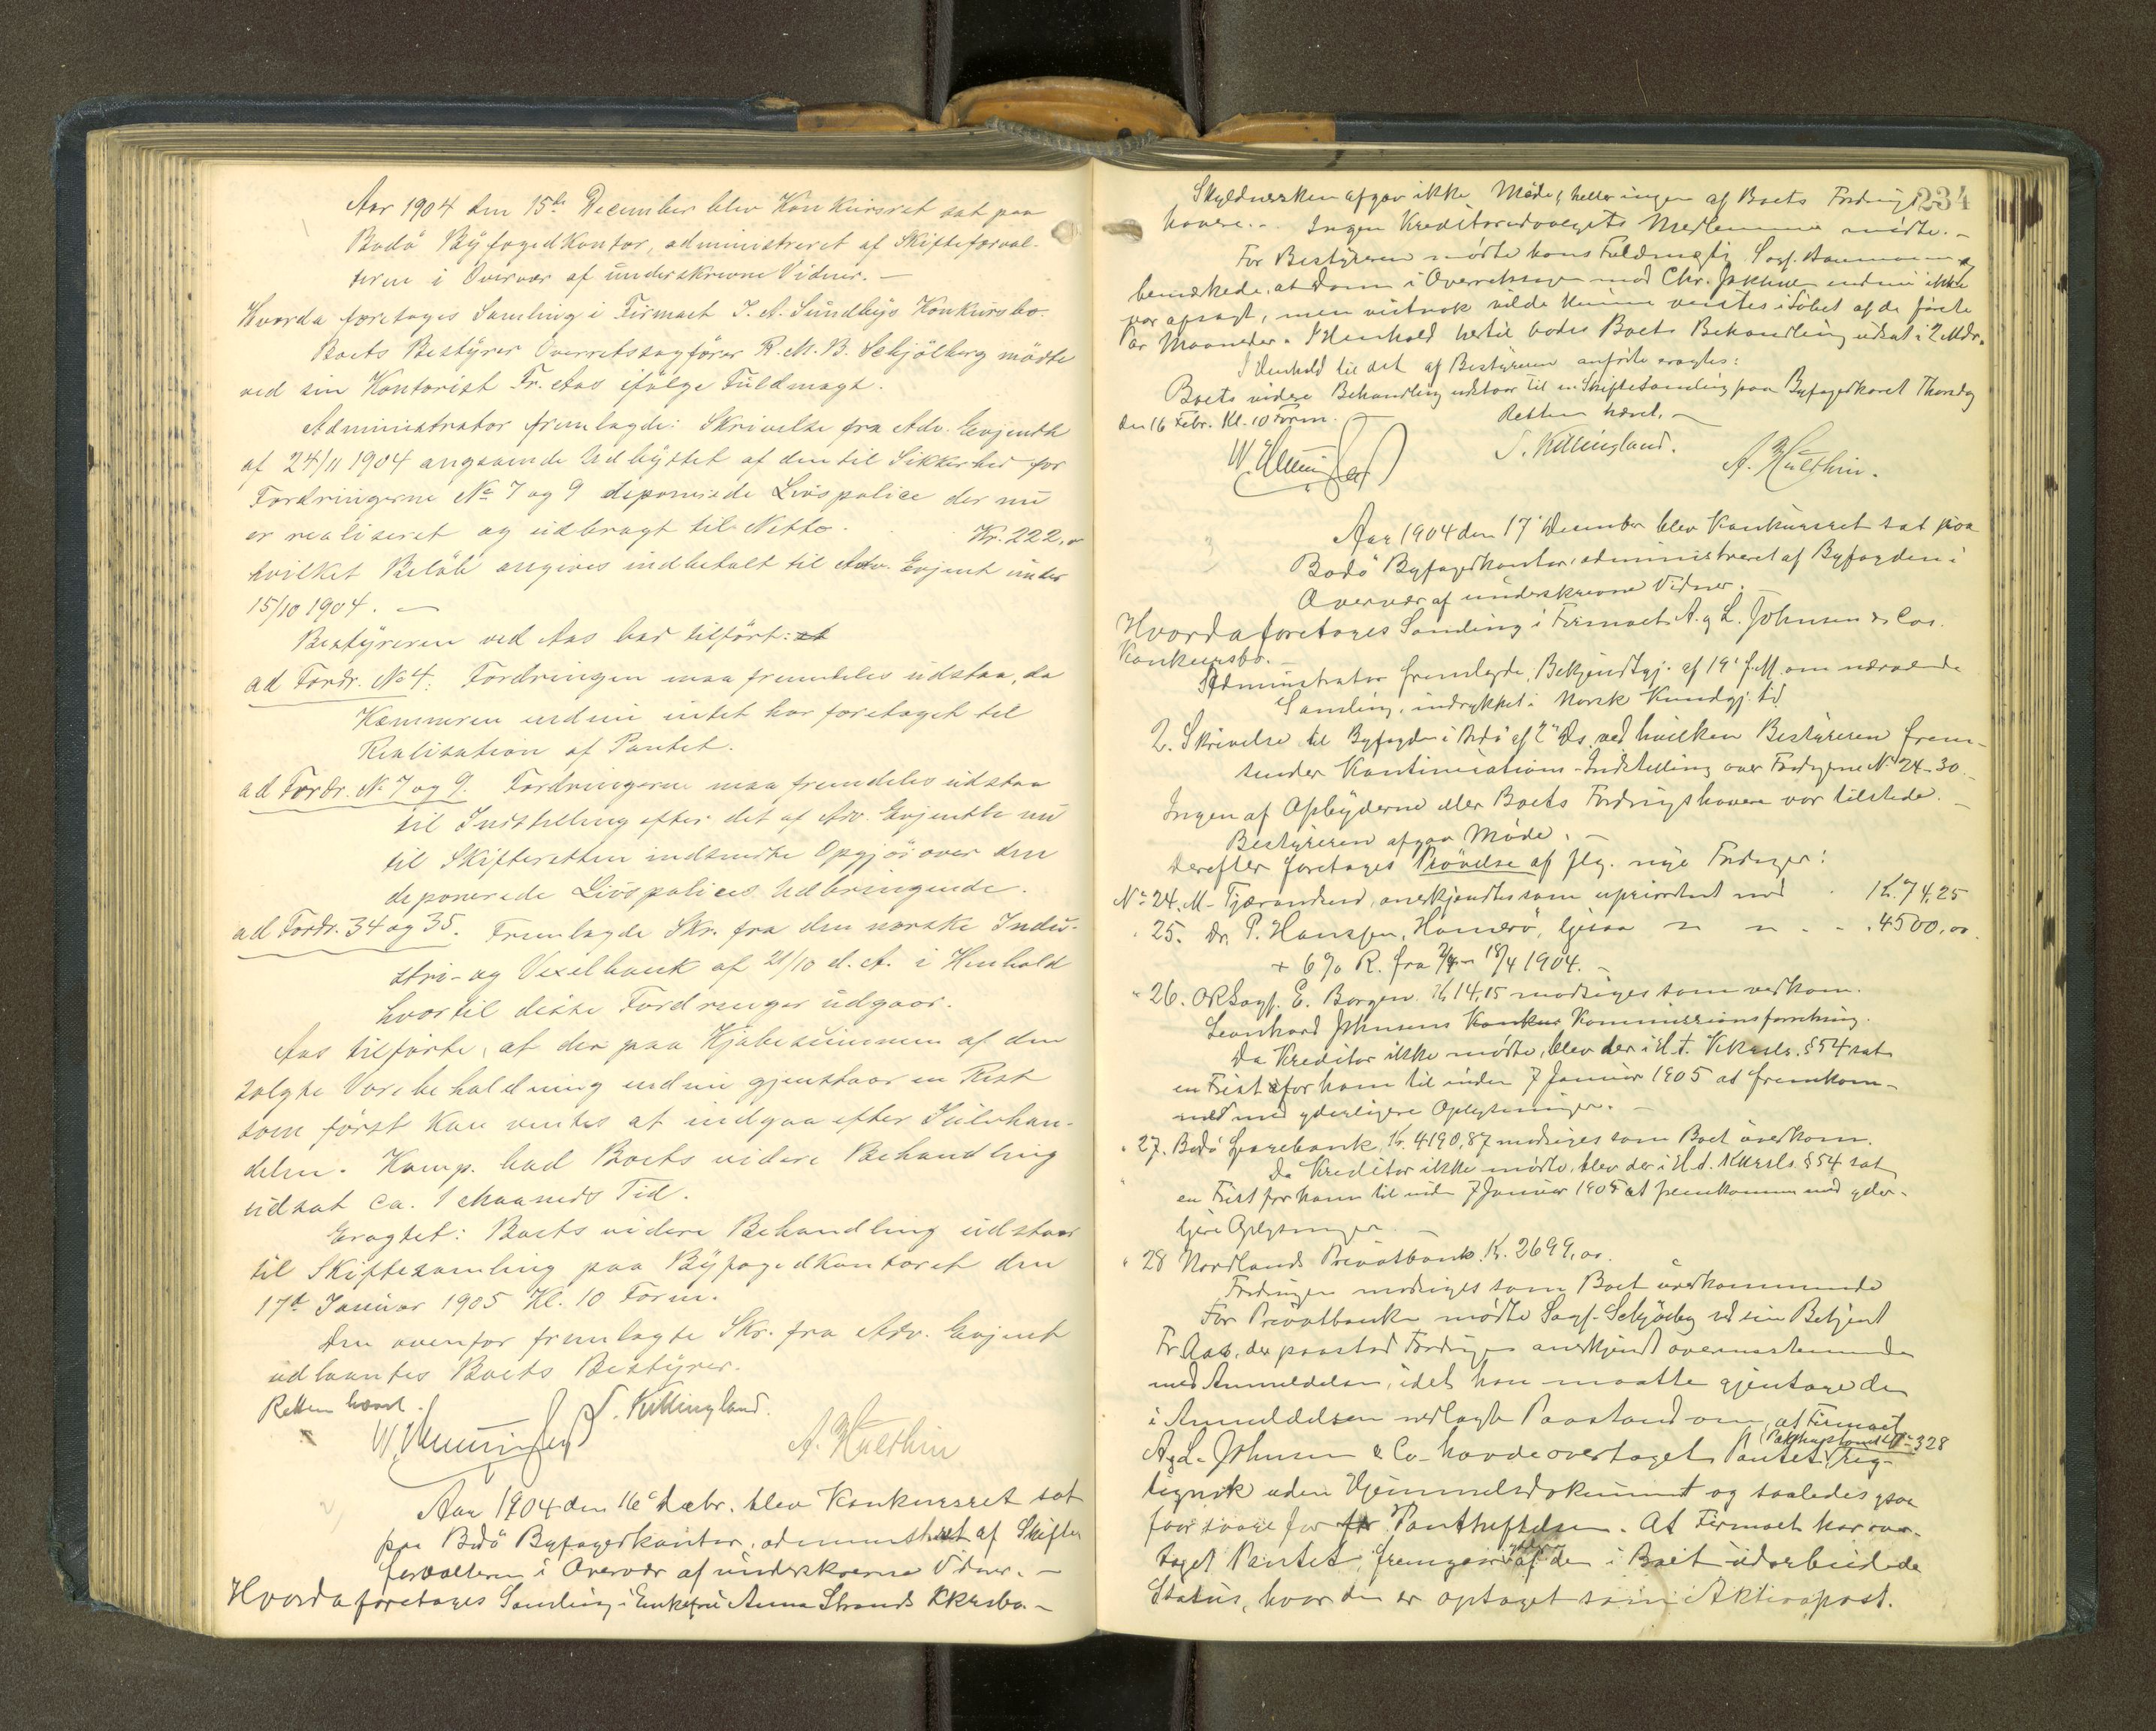 Aar 1904 den 15de December blev Konkursret sat paa
Bodö Byfogedkontor, administreret af Skifteforval-
teren i Overvær af underskrevne Vidner. —
Hvorda foretages Samling i Firmaet J. A. Sundbys Konkursbo.
Boets Bestyrer Overretssagförer R. M. B. Schjölberg mödte
ved sin Kontorist Fr. Aas ifölge Fuldmagt.
Administrator fremlagde: Skrivelse fra Adv. Evjenth
af 24/11 1904 angaaende Udbyttet af den til Sikkerhed for
Fordringerne No 7 og 9 deponerede Livspolice der nu
er realiseret og udbragt til Netto. Kr. 222,
hvilket Belöb angives indbetalt til Adv. Evjent under
15/10 1904. —
Bestyreren ved Aas bad tilfört: at
ad Fordr. No 4: Fordringen maa fremdeles udstaa, da
Kæmneren endnu intet har foretaget til
Realisation af Pantet.
ad Fordr. No 7 og 9. Fordringerne maa fremdeles udstaa
til Indstilling efter det af Adv. Evjenth nu
til Skifteretten indsendte Opgjör over den
deponerede Livspolices Udbringende.
ad Fordr. 34 og 35. Fremlagde Skr. fra den norske Indu-
stri- og Vexelbank af 21/10 d. A. i Henhold
hvortil disse Fordringer udgaar.
Aas tilförte, at der paa Kjöbesummen af den
solgte Varebeholdning endnu gjenstaar en Rest
som först kan ventes at indgaa efter Julehan-
delen. Komp. bad Boets videre Behandling
udsat ca. 1 Maaneds Tid.
Eragtet: Boets videre Behandling udstaar
til Skiftesamling paa Byfogedkontoret den
17de Januar 1905 Kl. 10 Form.
Den ovenfor fremlagte Skr. fra Adv. Evjent
udlaantes Boets Bestyrer.
Retten hævet.
S. Killingland.
A. Hulthin
Aar 1904 den 16de Decbr. blev Konkursret sat
paa Bodö Byfogedkontor, administreret af Skifte
forvalteren i Overvær af underskrevne Vidner. —
Hvorda foretages Samling i Enkefru Anna Strands Kkursbo. —
234
Skyldnersken afgav ikke Möde, heller ingen af Boets Fordrings
havere. - Ingen Kreditorudvalgets Medlemmer mödte. —
For Bestyreren mödte hans Fuldmægtig Sagf.
bemærkede, at Dom i Overretssagen mod Chr. Jakhelln endnu ikke
var afsagt, men vistnok vilde kunne ventes i Löbet af de förste
Par Maaneder. I Henhold hertil bades Boets Behandling udsat i 2 Mdr.
I Henhold til det af Bestyreren anförte eragtes:
Boets videre Behandling udstaar til en Skiftesamling paa Byfogedkoret Thorsdag
den 16 Febr. Kl. 10 Form. Retten hævet. —
S. Killingland.
A. Hulthin.
3
Aar 1904 den 17' December blev Konkursret sat paa
Bodö Byfogedkontor, administreret af Byfogden i
Overvær af underskrevne Vidner.
Hvorda foretages Samling i Firmaet A. g L. Johnsen & Cos.
Konkursbo. —
Administrator fremlagde, Bekjendtgj. af 19' f. M. om nærværende
Samling, indrykket i Norsk Kundgj. tid
2. Skrivelse til Byfogden i Bodö af 2' ds. ved hvilken Bestyreren frem-
sender Kontinuations-Indstilling over Fordrgerne No 24-30. —
Ingen af Opbyderne eller Boets Fordringshavere var tilstede. —
Bestyreren afgav Möde. —
Derefter foretages Prövelse af flg. nye Fordringer:
No 24. M. Tjærandsen, anerkjendtes som uprioritert med Kr. 74,25
" 25. Dr. P. Hanssen, Hamerö, ligesaa " " . - . 4500,00.
+ 6% R. fra 18/4 1904. —
" 26. ORsagf. E. Borgen. Kr 14,15 modsiges som vedkom.
Leonhard Johnsens Konkurs Kommissionsforretning.
Da Kreditor ikke mödte, blev der i H. t. Kkursls. § 54 sat
en Frist for ham til inden 7 Januar 1905 at fremkom-
med med yderligere Oplysninger. —
" 27. Bodö Sparebank, Kr. 4190,87 modsiges som Boet uvedkom.
Da Kreditor ikke mödte, blev der i H. t. Kkursls. § 54 sat
en Frist for ham til inden 7 Januar 1905 at fremkomme med yder-
ligere Oplysninger. —
" 28 Nordlands Privatbank. Kr. 2699,00.
Fordringen modsiges som Boet uvedkommende
For Privatbanken mödte Sagf. Schjölberg ved sin Betjent
Fr. Aas, der paastod Fordringen anerkjendt overensstemmende
med Anmeldelsen, idet han maatte gjentage den
i Anmeldelsen nedlagte Paastand om, at Firmaet
A g L. Johnsen & Co. havde overtaget Pantet (Pakhustomt No 328) rig-
tignok uden Hjemmelsdokument og saaledes ogsaa
faar svare for for Pantheftelsen. At Firmaet har over-
taget Pantet, fremgaar af den i Boet udarbeidede
Status, hvor den er optaget som Aktivapost.